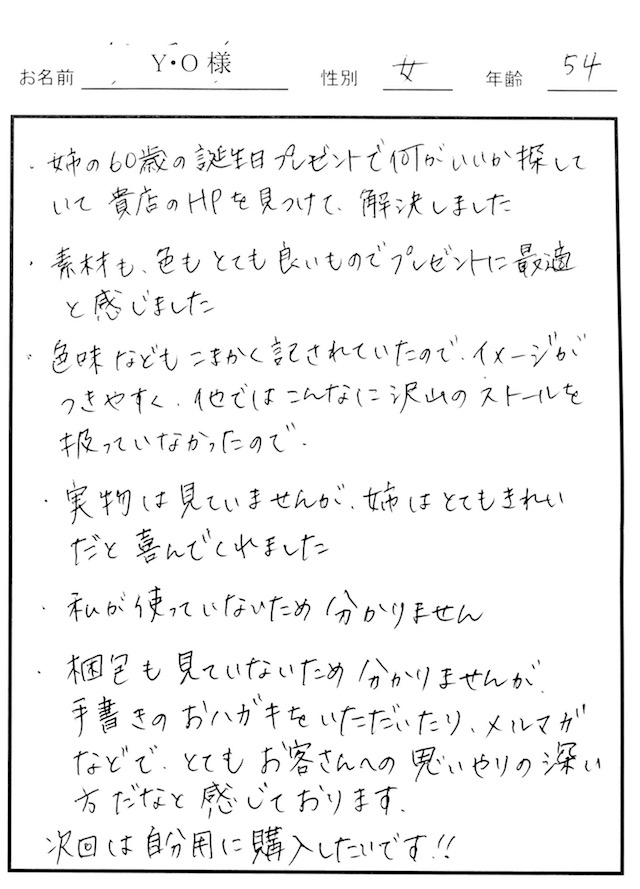 お名前 Y・O様 性別 女 年齢 54
・姉の60歳の誕生日プレゼントで何がいいか探して
いて 貴店のHPを見つけて、解決しました
・素材も、色もとても良いものでプレゼントに最適
と感じました
・色味などもこまかく記されていたので、イメージが
つきやすく、他ではこんなに沢山のストールを
扱っていなかったので、
・実物は見ていませんが、姉はとてもきれい
だと喜んでくれました
・私が使っていないため分かりません
・梱包も見ていないため分かりませんが、
手書きのおハガキをいただいたり、メルマガ
などで、とてもお客さんへの思いやりの深い
方だなと感じております。
次回は自分用に購入したいです!!